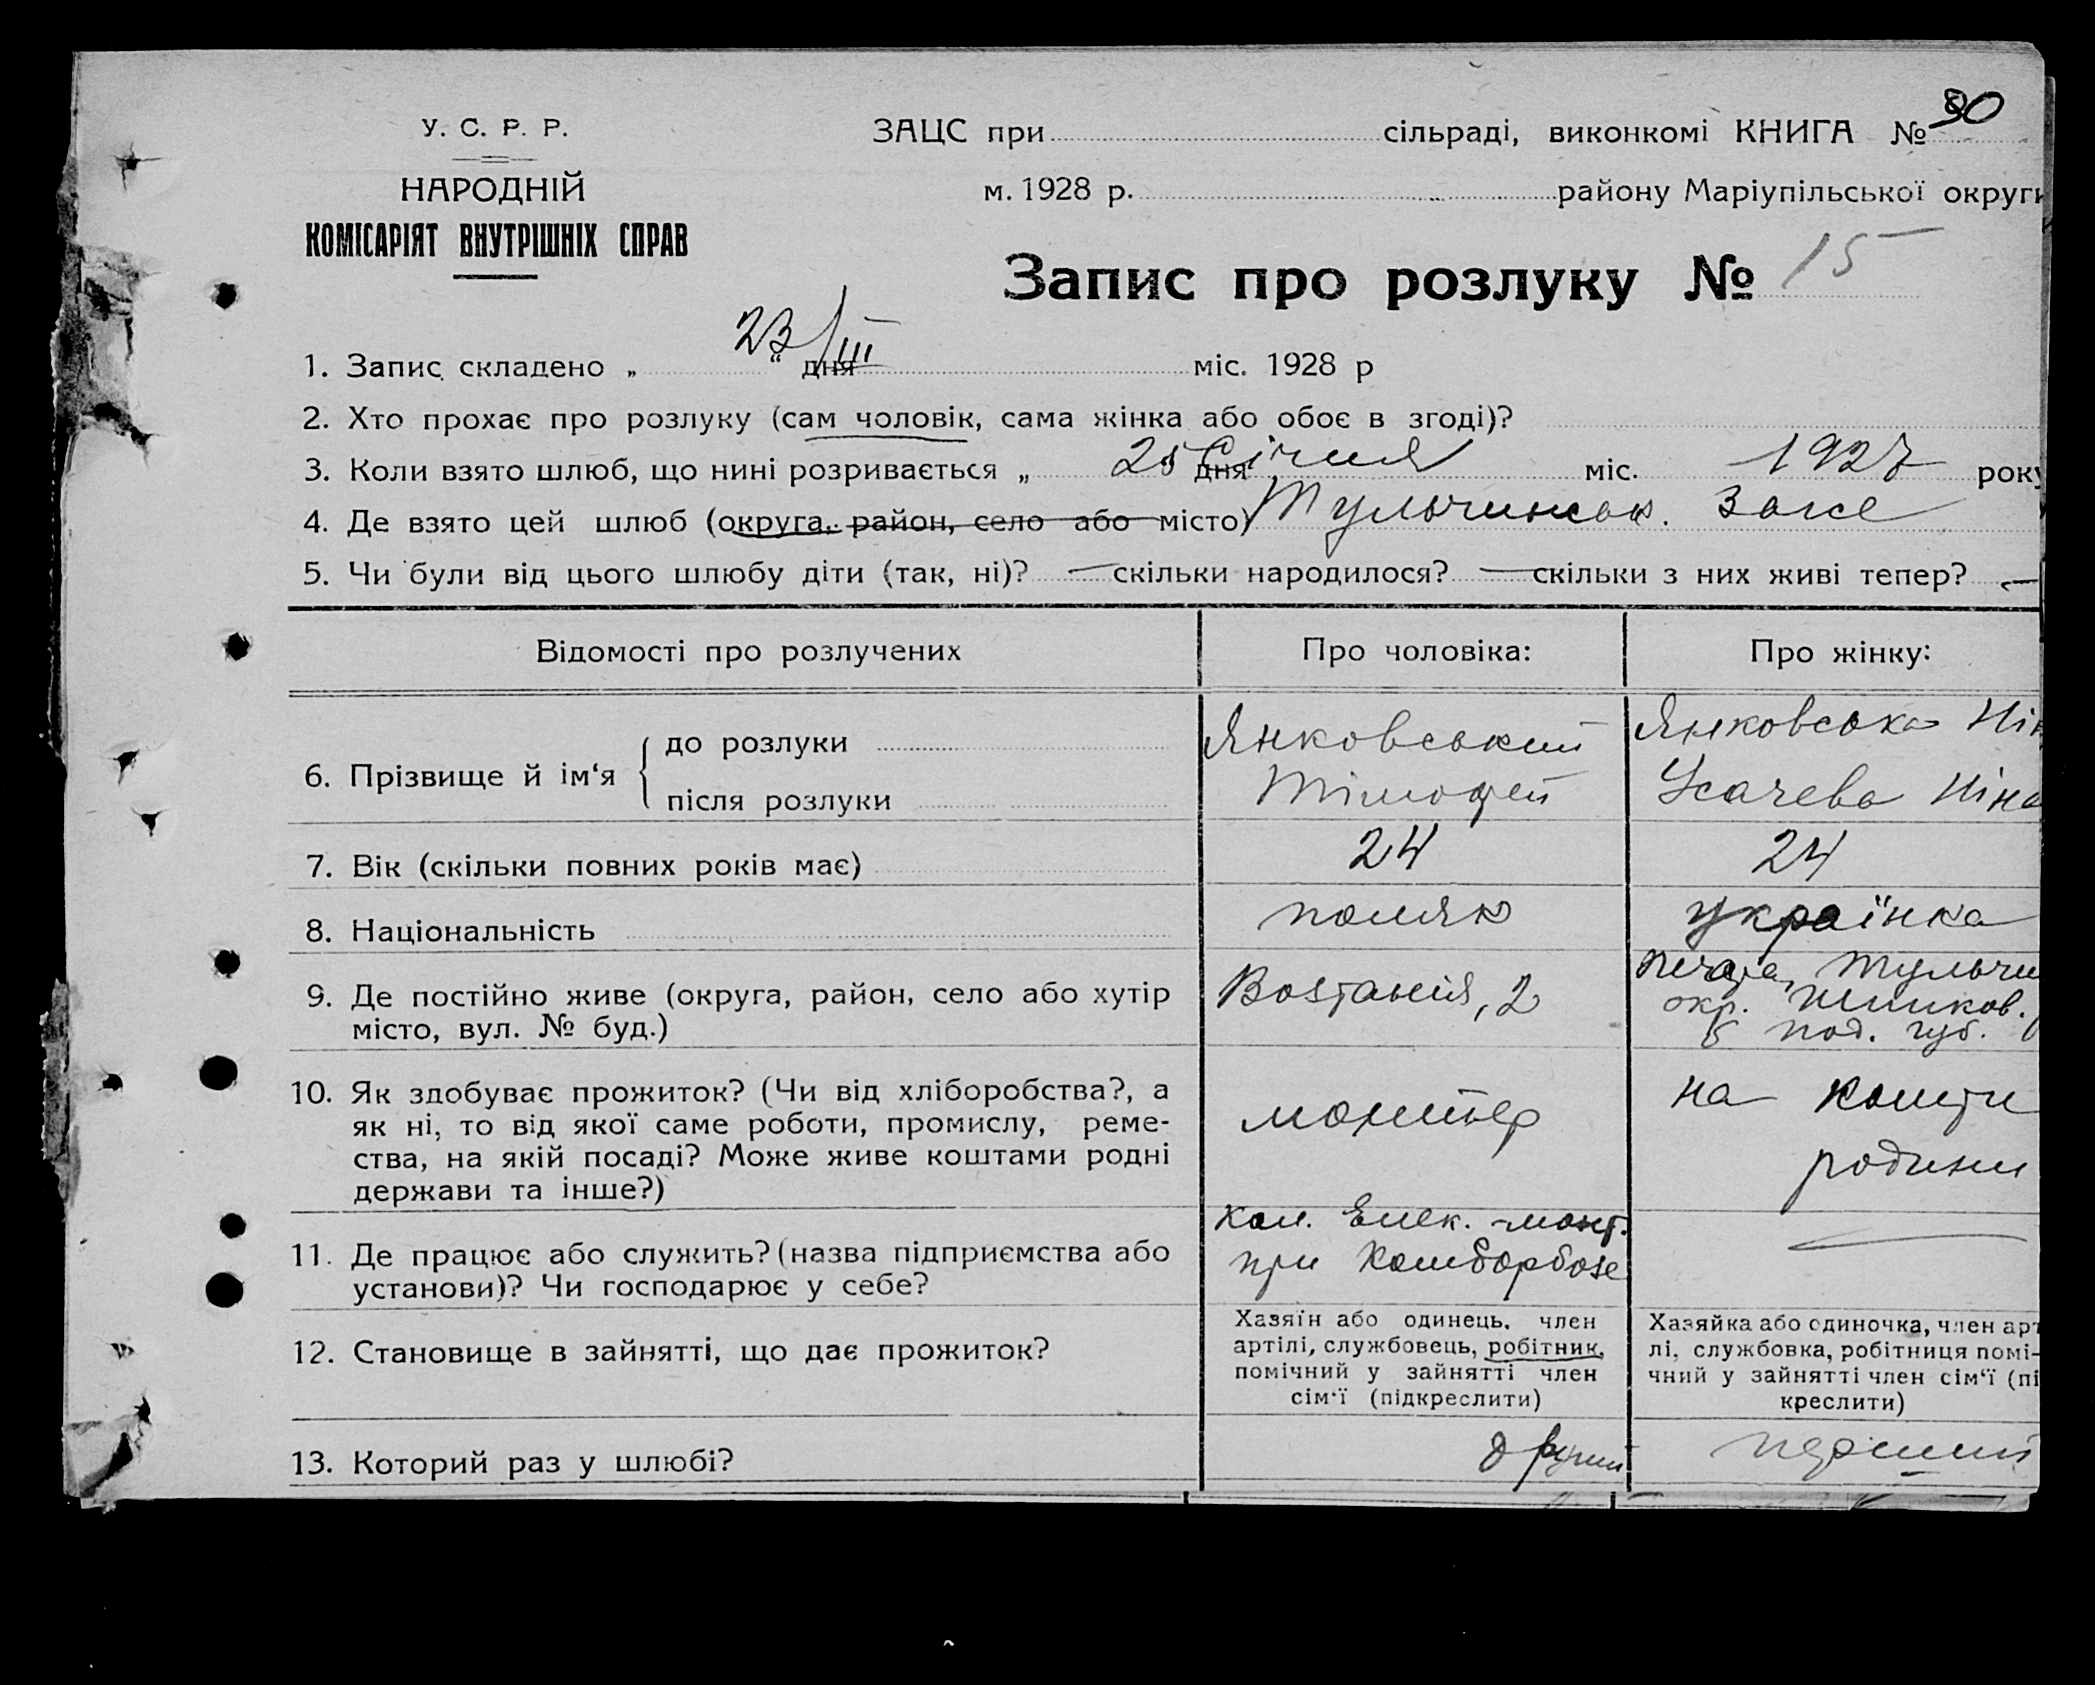 У. С. Р. Р.
НАРОДНІЙ
КОМІСАРІЯТ ВНУТРІШНІХ СПРАВ
ЗАЦС при сільраді, виконкомі КНИГА №
м. 1928 р. районy Маріупільської округи
Запис про розлуку № 15
1. Запис складено „ 23/III “ дня міс. 1928 р
2. Хто прохає про розлуку (сам чоловік, сама жінка або обоє в згоді)?
3. Коли взято шлюб, що нині розривається „ 25 “ дня Січня міс. 1927 року
4. Де взято цей шлюб (округа, район, село або місто) Тульчинськ. загс
5. Чи були від цього шлюбу діти (так, ні)? — скільки народилося? — скільки з них живі тепер? —
Відомості про розлучених Про чоловіка: Про жінку:
6. Прізвище й ім‘я { до розлуки Янковський Янковська Нін
після розлуки Тімофей Усачева Ніна
7. Вік (скільки повних років має) 24 24
8. Національність поляк українка
9. Де постійно живе (округа, район, село або хутір місто, вул. № буд.) Возтанія, 2
Тульчи
окр.
под. губ.
10. Як здобуває прожиток? (Чи від хліборобства?, а
як ні, то від якої саме роботи, промислу, реме-
ства, на якій посаді? Може живе коштами родні
держави та інше?)
монтер
на кошти
родини
11. Де працює або служить? (назва підприємства або
установи)? Чи господарює у себе?
Елек. монт.
при
—
12. Становище в зайнятті, що дає прожиток?
Хазяїн або одинець, член
артілі, службовець, робітник,
помічний у зайнятті член
сім‘ї (підкреслити)
Хазяйка або одиночка, член арт
лі, службовка, робітниця помі-
чний у зайнятті член сім‘ї (пі
креслити)
13. Которий раз у шлюбі? другий перший